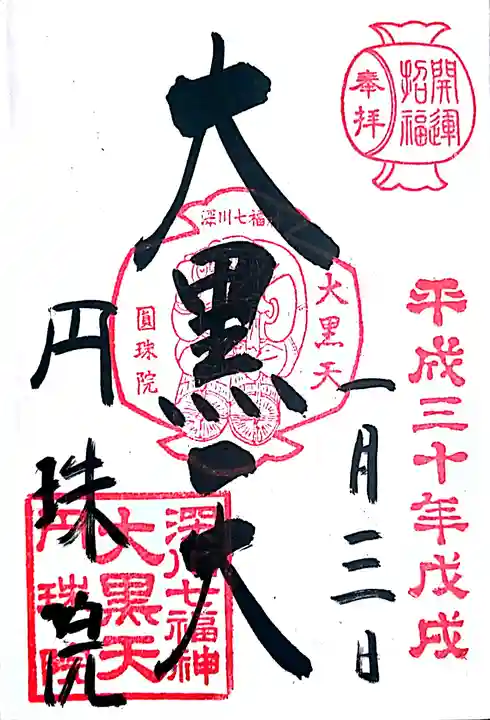 奉拝
開運
招福
平成三十年戊戌
一月三日
大黒天
深川七福神
大黒天
圓珠院
円珠院
深川七福神
大黒天
円珠院